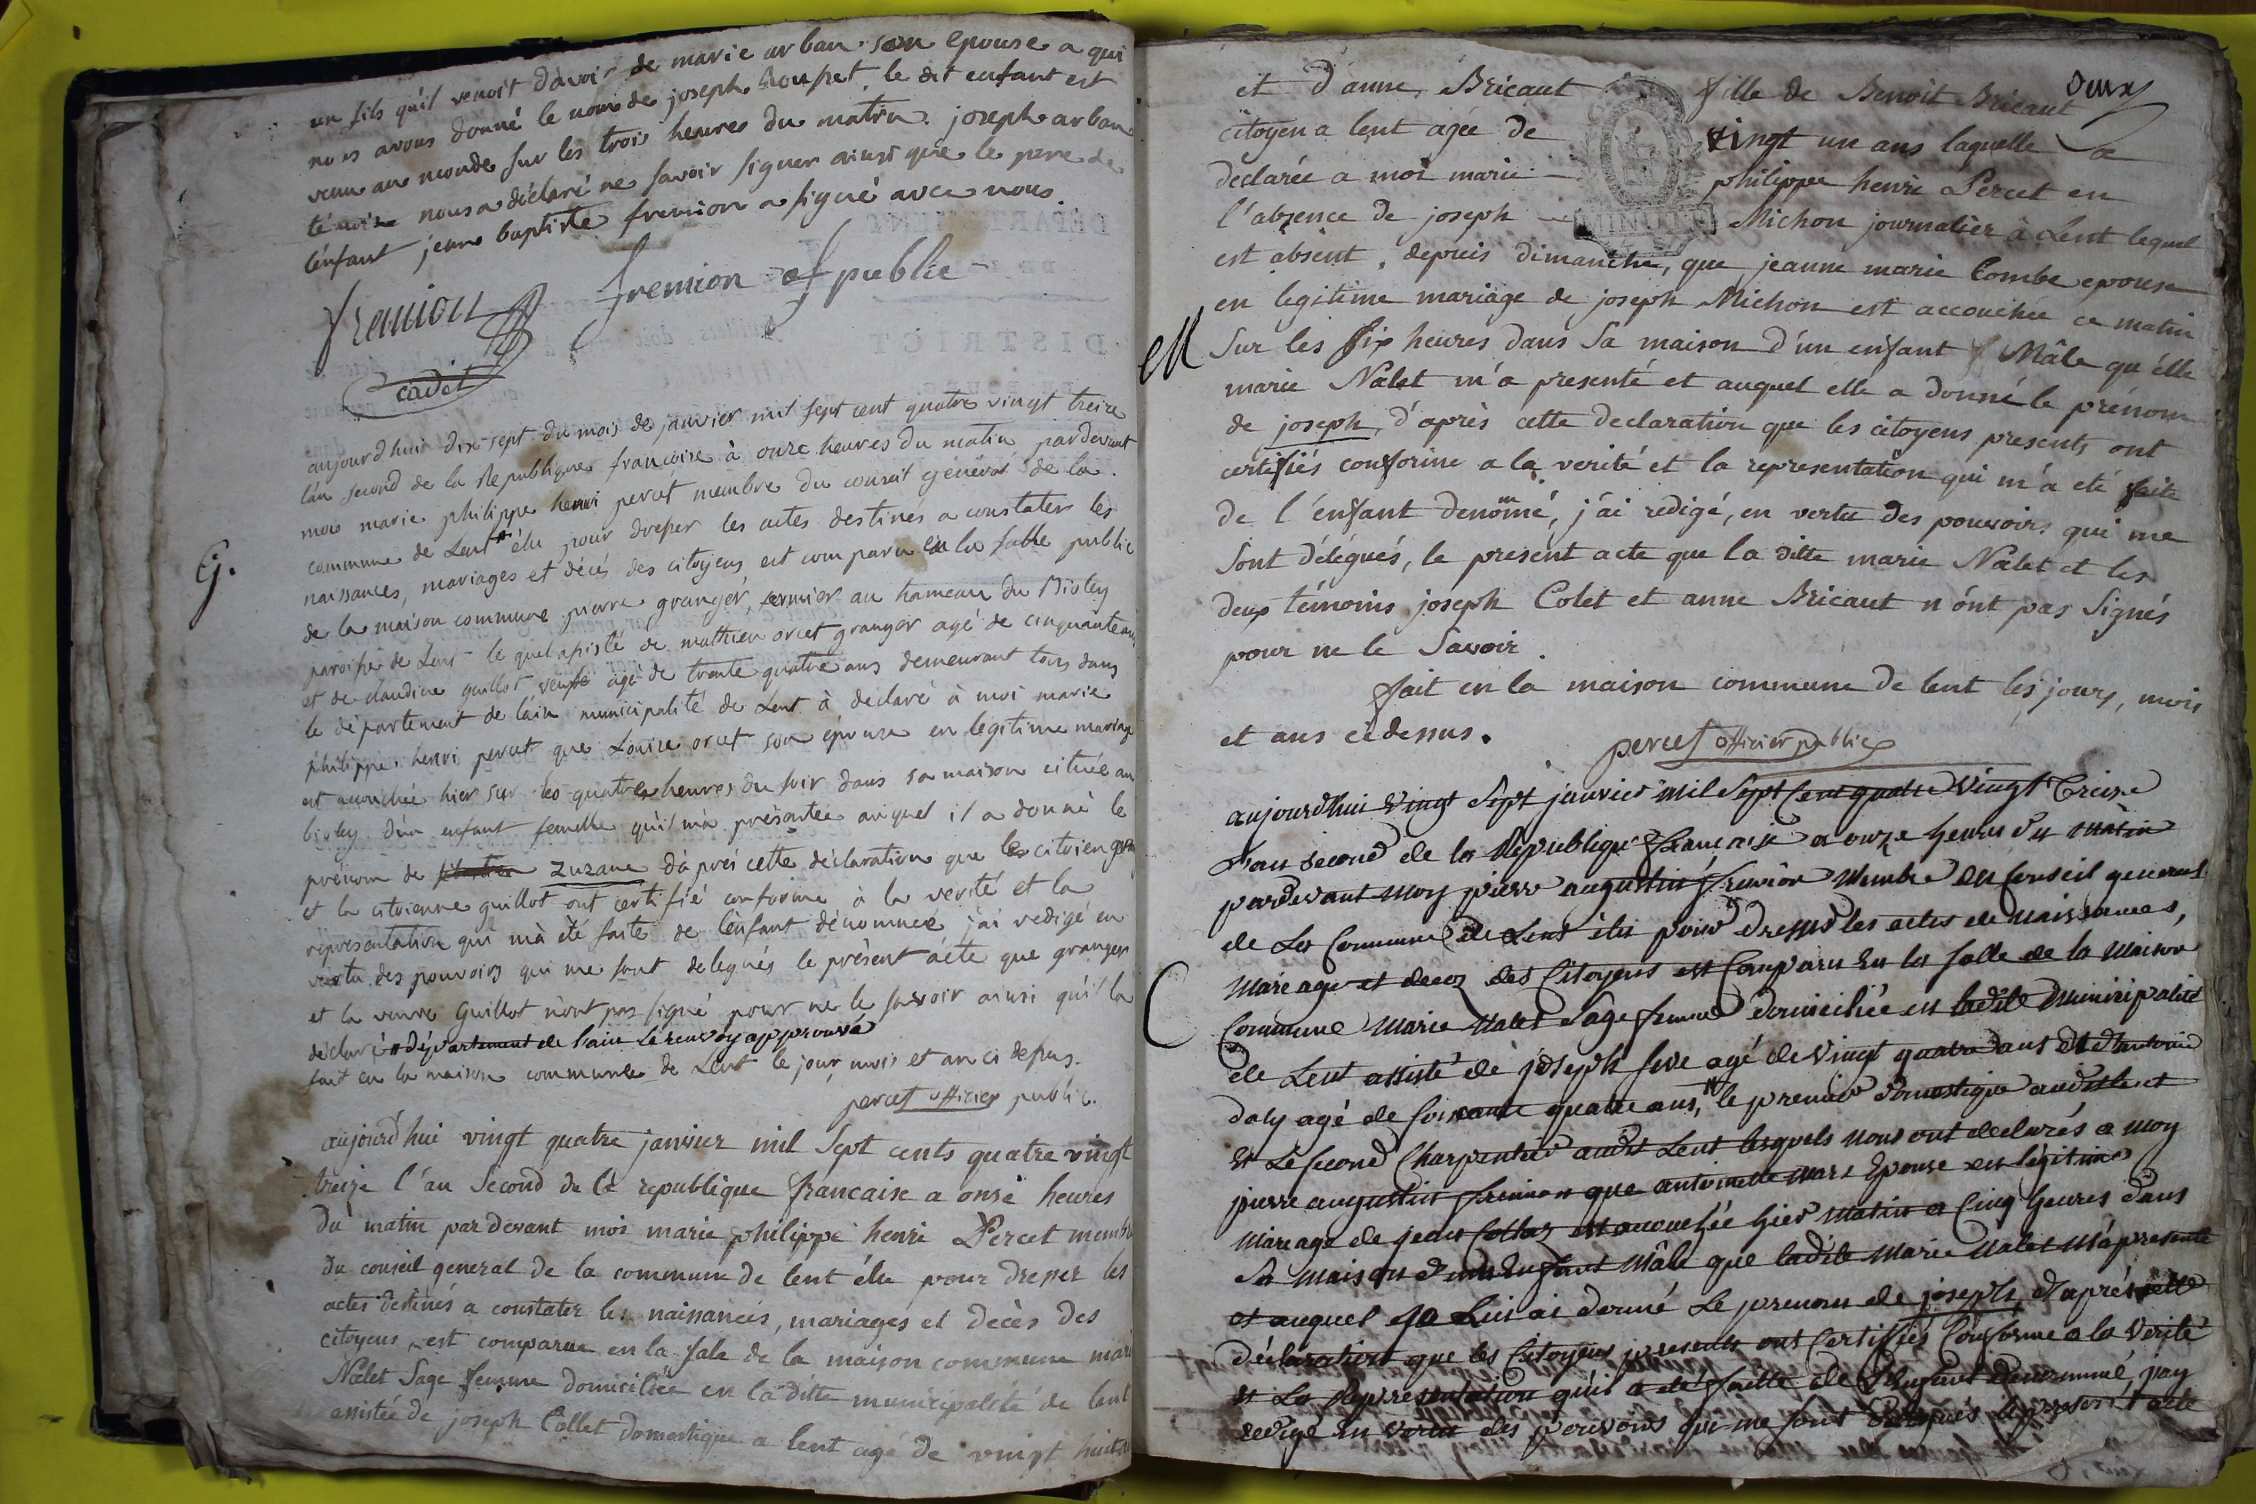 un fils qu'il venoit d'avoir de marie arban son epouse a qui
nous avons donné le nom de joseph le dit enfant est
venu au monde sur les trois heures du matin. joseph arban
témoin nous a déclaré ne savoir signer ainsi que le pere de
l'enfant jean baptiste fremion a signé avec nous.
fremion fremion of public
cadit
aujourdhui dix sept du mois de janvier mil sept cent quatre vingt treize
l'an second de la Republique francoise à onze heures du matin pardevant
moi marie philippe henri percet membre du conseil général de la
commune de Lent élu pour dresser les actes destinés a constater les
naissances, mariages et décés des citoyens est comparu en la salle public
Gj.
de la maison commune pierre granger, fermier au hameau du Bioley
paroisse de Lent le quel assisté de mathieu orcet granger agé de cinquante ans
et de claudine guillot veuve agé de trente quatre ans demeurant tous dans
le département de lain municipalité de Lent à declaré à moi marie
philippe henri percet que Louise orcet son épouse en legitime mariage
est accouchée hier sur les quatre heures du soir dans sa maison cituée au
bioley d'un enfant femelle qu'il m'a présentée auquel il a donné le
prénom de zuzane d'après cette déclaration que les citoien
et la citoienne guillot ont certifié conforme à la verité et la
représentation qui m'à été faite de l'enfant dénommée j'ai redigé en
vertu des pouvoirs qui me sont delegués le présent acte que granger
et la veuve Guillot n'ont pas signé pour ne le savoir ainsi qu'il la
déclaré département de l'ain Le renvoy approuvé
fait en la maison commune de Lent le jour mois et an ci dessus.
percet officier public.
aujourd'hui vingt quatre janvier mil Sept cents quatre vingt
treize l'an Second de la republique francaise a onse heures
du matin par devant moi marie philippe henri Percet membre
du conseil general de la commune de lent élu pour dresser les
actes destinés a constater les naissances, mariages et décès des
citoyens est comparue en la sale de la maison commune marie
Nalet Sage femme domiciliée en la ditte municipalité de lent
assistée de joseph Collet domestique a lent agé de vingt huit
deux
et d'anne Bricaut fille de Benoit Bricaut
citoyen a lent agée de vingt un ans laquelle a
declarée a moi marie philippe henri Percet en
l'absence de joseph Michon journalier à Lent lequel
est absent depuis dimanche, que jeanne marie Combe epouse
en legitime mariage de joseph Michon est accouchée ce matin
M
sur les six heures dans sa maison d'un enfant Mâle qu'elle
marie Nalet m'a presenté et auquel elle a donné le prénom
de joseph, d'après cette declaration que les citoyens presents ont
certifiés conforme a la verité et la representation qui m'a eté faite
de l'enfant denommé, j'ai redigé, en vertu des pouvoirs qui me
sont délégués, le present acte que la ditte marie Nalet et les
deux témoins joseph Colet et anne Bricaut n'ont pas signés
pour ne le Savoir.
fait en la maison commune de lent les jours, mois
et ans ci dessus.
percet officier public
aujourdhui vingt Sept janvier mil Sept Cent quatre Vingt Treize
L'an second de la République française a onze heures du matin
pardevant moy pierre augustin fremion Membre du Conseil general
de La Commune de Lent élu pour dresser les actes de Naissances,
Mareage et decez des Citoyens est Comparu En la salle de la Maison
C
Commune Marie Nalet Sage femme domiciliée en ladite Municipalité
de Lent assisté de joseph agé de Vingt quatre ans Et d'antoine
daly agé de Soixante quatre ans, le premier domestique audit Lent
Et Le second Charpentier audit Lent lesquels nous ont declarés a moy
pierre augustin fremion que antoinette Epouse en légitime
Mareage de jean est accouchée hier matin a Cinq heures dans
sa maison d'un Enfant Mâle que ladite Marie Nalet M'a presenté
et auquel je Lui ai donné Le prenom de joseph, d'aprés cette
déclaration que les Citoyens presents ont Certiffiés Conforme a la Verité
et La Representation qui a été faitte de l'Enfant denommé, jay
redigé En vertu des pouvoirs qui me sont delegués le present acte